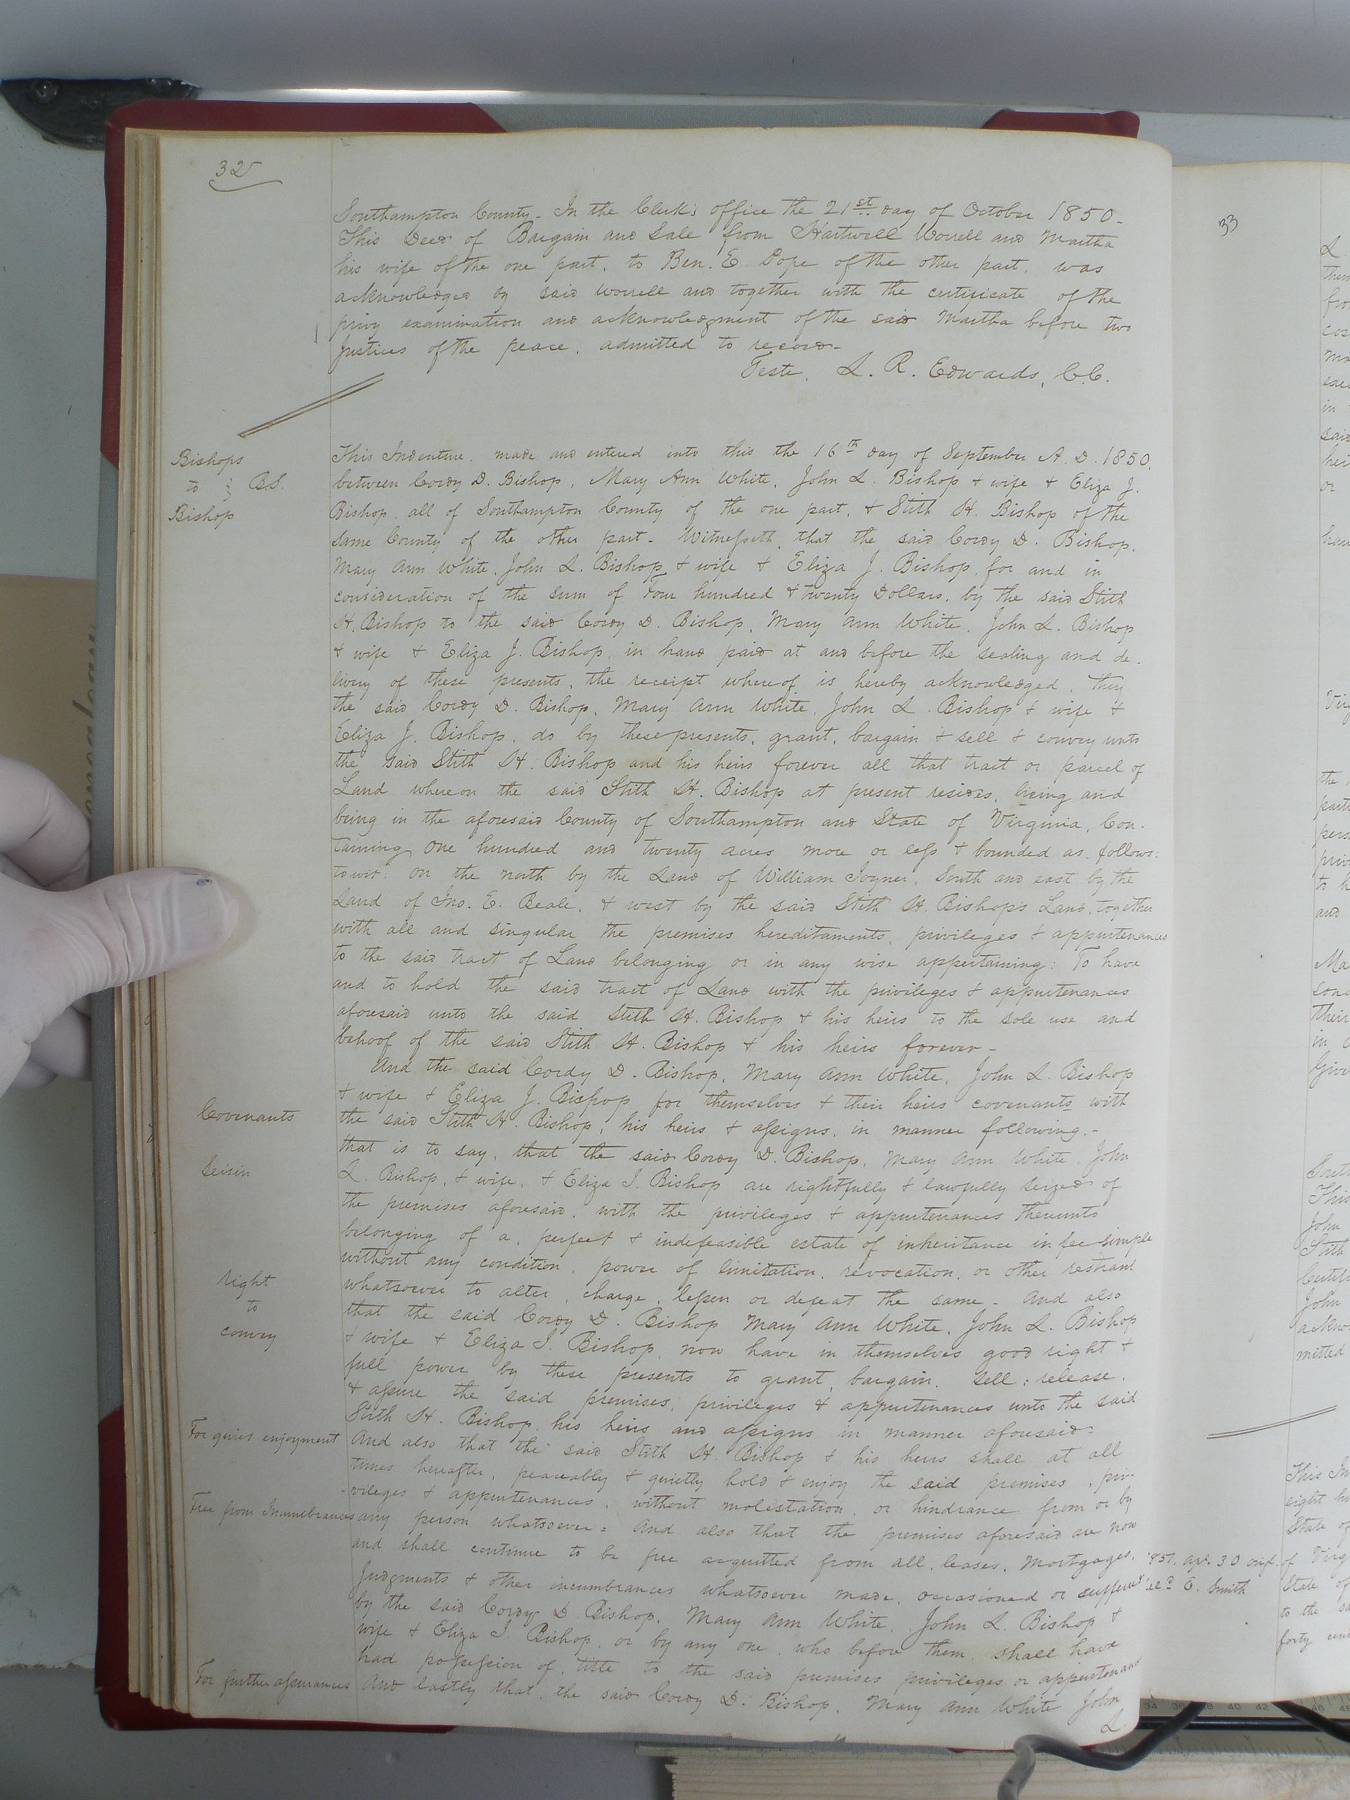 32
Southampton County - In the Clerk's office the 21st. day of October 1850 -
This Deed of Bargain and Sale from Hartwell Worrell and Martha
his wife of the one part, to Ben. E. Pope of the other part, was
acknowledged by said Worrell and together with the certificate of the
privy examination and acknowledgment of the said Martha before two
Justices of the peace, admitted to record -
Teste, L. R. Edwards, C.C.
Bishops
to B.S.
Bishop
This Indenture, made and entered into this the 16th day of September A. D. 1850,
between Cordy D. Bishop, Mary Ann White, John L. Bishop + wife + Eliza J.
Bishop, all of Southampton County of the one part, + Stith H. Bishop of the
same County of the other part - Witnesseth, that the said Cordy D. Bishop,
Mary Ann White, John L. Bishop + wife + Eliza J. Bishop, for and in
consideration of the sum of Four hundred + twenty Dollars, by the said Stith
H. Bishop to the said Cordy D. Bishop, Mary Ann White, John L. Bishop
+ wife + Eliza J. Bishop, in hand paid at and before the sealing and de-
livery of these presents, the receipt whereof is hereby acknowledged, they
the said Cordy D. Bishop, Mary Ann White, John L. Bishop + wife +
Eliza J. Bishop, do by these presents, grant, bargain + sell + convey unto
the said Stith H. Bishop and his heirs forever all that tract or parcel of
Land whereon the said Stith H. Bishop at present resides, lieing and
being in the aforesaid County of Southampton and State of Virginia, Con-
taining One hundred and twenty acres more or less + bounded as follows:
to wit: on the north by the Land of William Joyner, South and east by the
Land of Jno. E. Beale, + west by the said Stith H. Bishops Land, together
with all and singular the premises hereditaments, privileges + appurtenances
to the said tract of Land belonging or in any wise appertaining: To have
and to hold the said tract of Land with the privileges + appurtenances
aforesaid unto the said Stith H. Bishop + his heirs to the sole use and
behoof of the said Stith H. Bishop + his heirs forever -
And the said Cordy D. Bishop, Mary Ann White, John L. Bishop
+ wife + Eliza J. Bishop for themselves + their heirs covenants with
Covenants
the said Stith H. Bishop, his heirs + assigns, in manner following -
that is to say, that the said Cordy D. Bishop, Mary Ann White, John
Seisin
L. Bishop, + wife, + Eliza J. Bishop are rightfully + lawfully seized of
the premises aforesaid, with the privileges + appurtenances thereunto
belonging of a, perfect + indefeasible estate of inheritance in fee simple
without any condition, power of limitation, revocation, or other restraint
right
to
convey
whatsoever to alter, change, lessen or defeat the same - And also
that the said Cordy D. Bishop Mary Ann White, John L. Bishop
+ wife + Eliza J. Bishop, now have in themselves good right +
full power by these presents to grant, bargain, sell, release,
+ assure the said premises, privileges + appurtenances unto the said
Stith H. Bishop, his heirs and assigns in manner aforesaid -
For quiet enjoyment
And also that the said Stith H. Bishop + his heirs shall at all
times hereafter, peaceably + quietly hold + enjoy the said premises, pri-
vileges + appurtenances, without molestation or hindrance from or by
Free from Incumbrances
any person whatsoever = And also that the premises aforesaid are now
and shall continue to be free acquitted from all leases, Mortgages,
Judgments + other incumbrances whatsoever made, occasioned or suffered
by the said Cordy D. Bishop, Mary Ann White, John L. Bishop +
wife + Eliza J. Bishop, or by any one, who before them, shall have
had possession of, title to the said premises privileges or appurtenances
For further assurances
And lastly that, the said Cordy D. Bishop, Mary Ann White John
L.
33
E. Smith